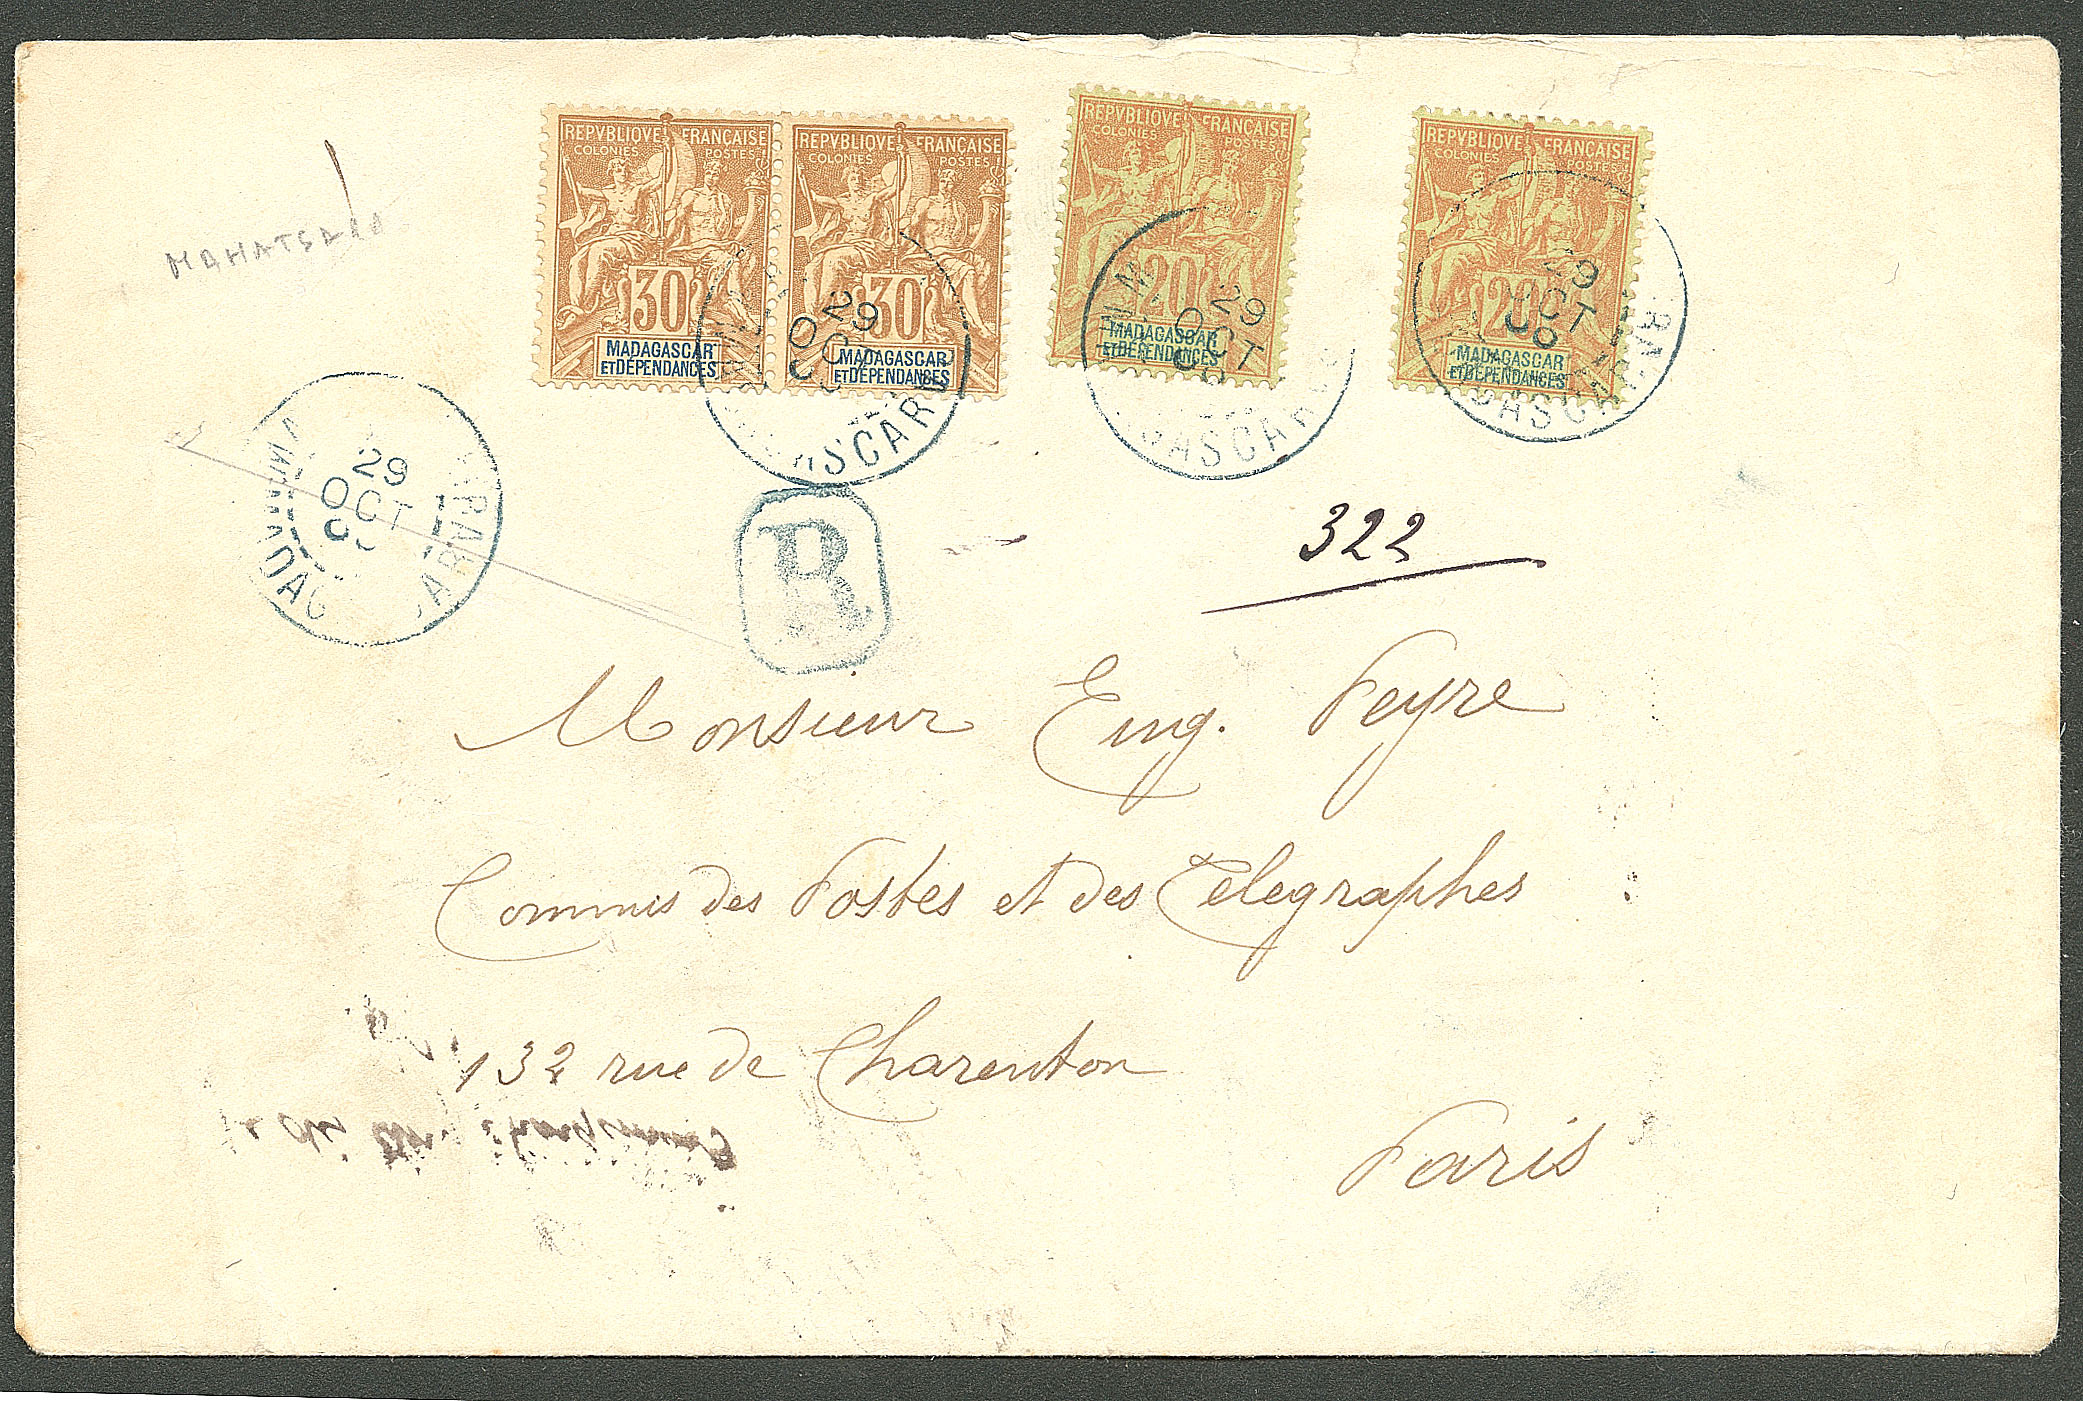 REPVBLIQVE FRANÇAISE
COLONIES POSTES
30
MADAGASCAR
ET DÉPENDANCES
REPVBLIQVE FRANÇAISE
COLONIES POSTES
30
MADAGASCAR
ET DÉPENDANCES
REPVBLIQVE FRANÇAISE
COLONIES POSTES
20
MADAGASCAR
ET DÉPENDANCES
REPVBLIQVE FRANÇAISE
COLONIES POSTES
20
MADAGASCAR
ET DÉPENDANCES
29
OCT
29
OCT
29
OCT
29
OCT
R
322
Monsieur Eug. Peyre
Commis des Postes et des Télégraphes
132 rue de Charenton
Paris